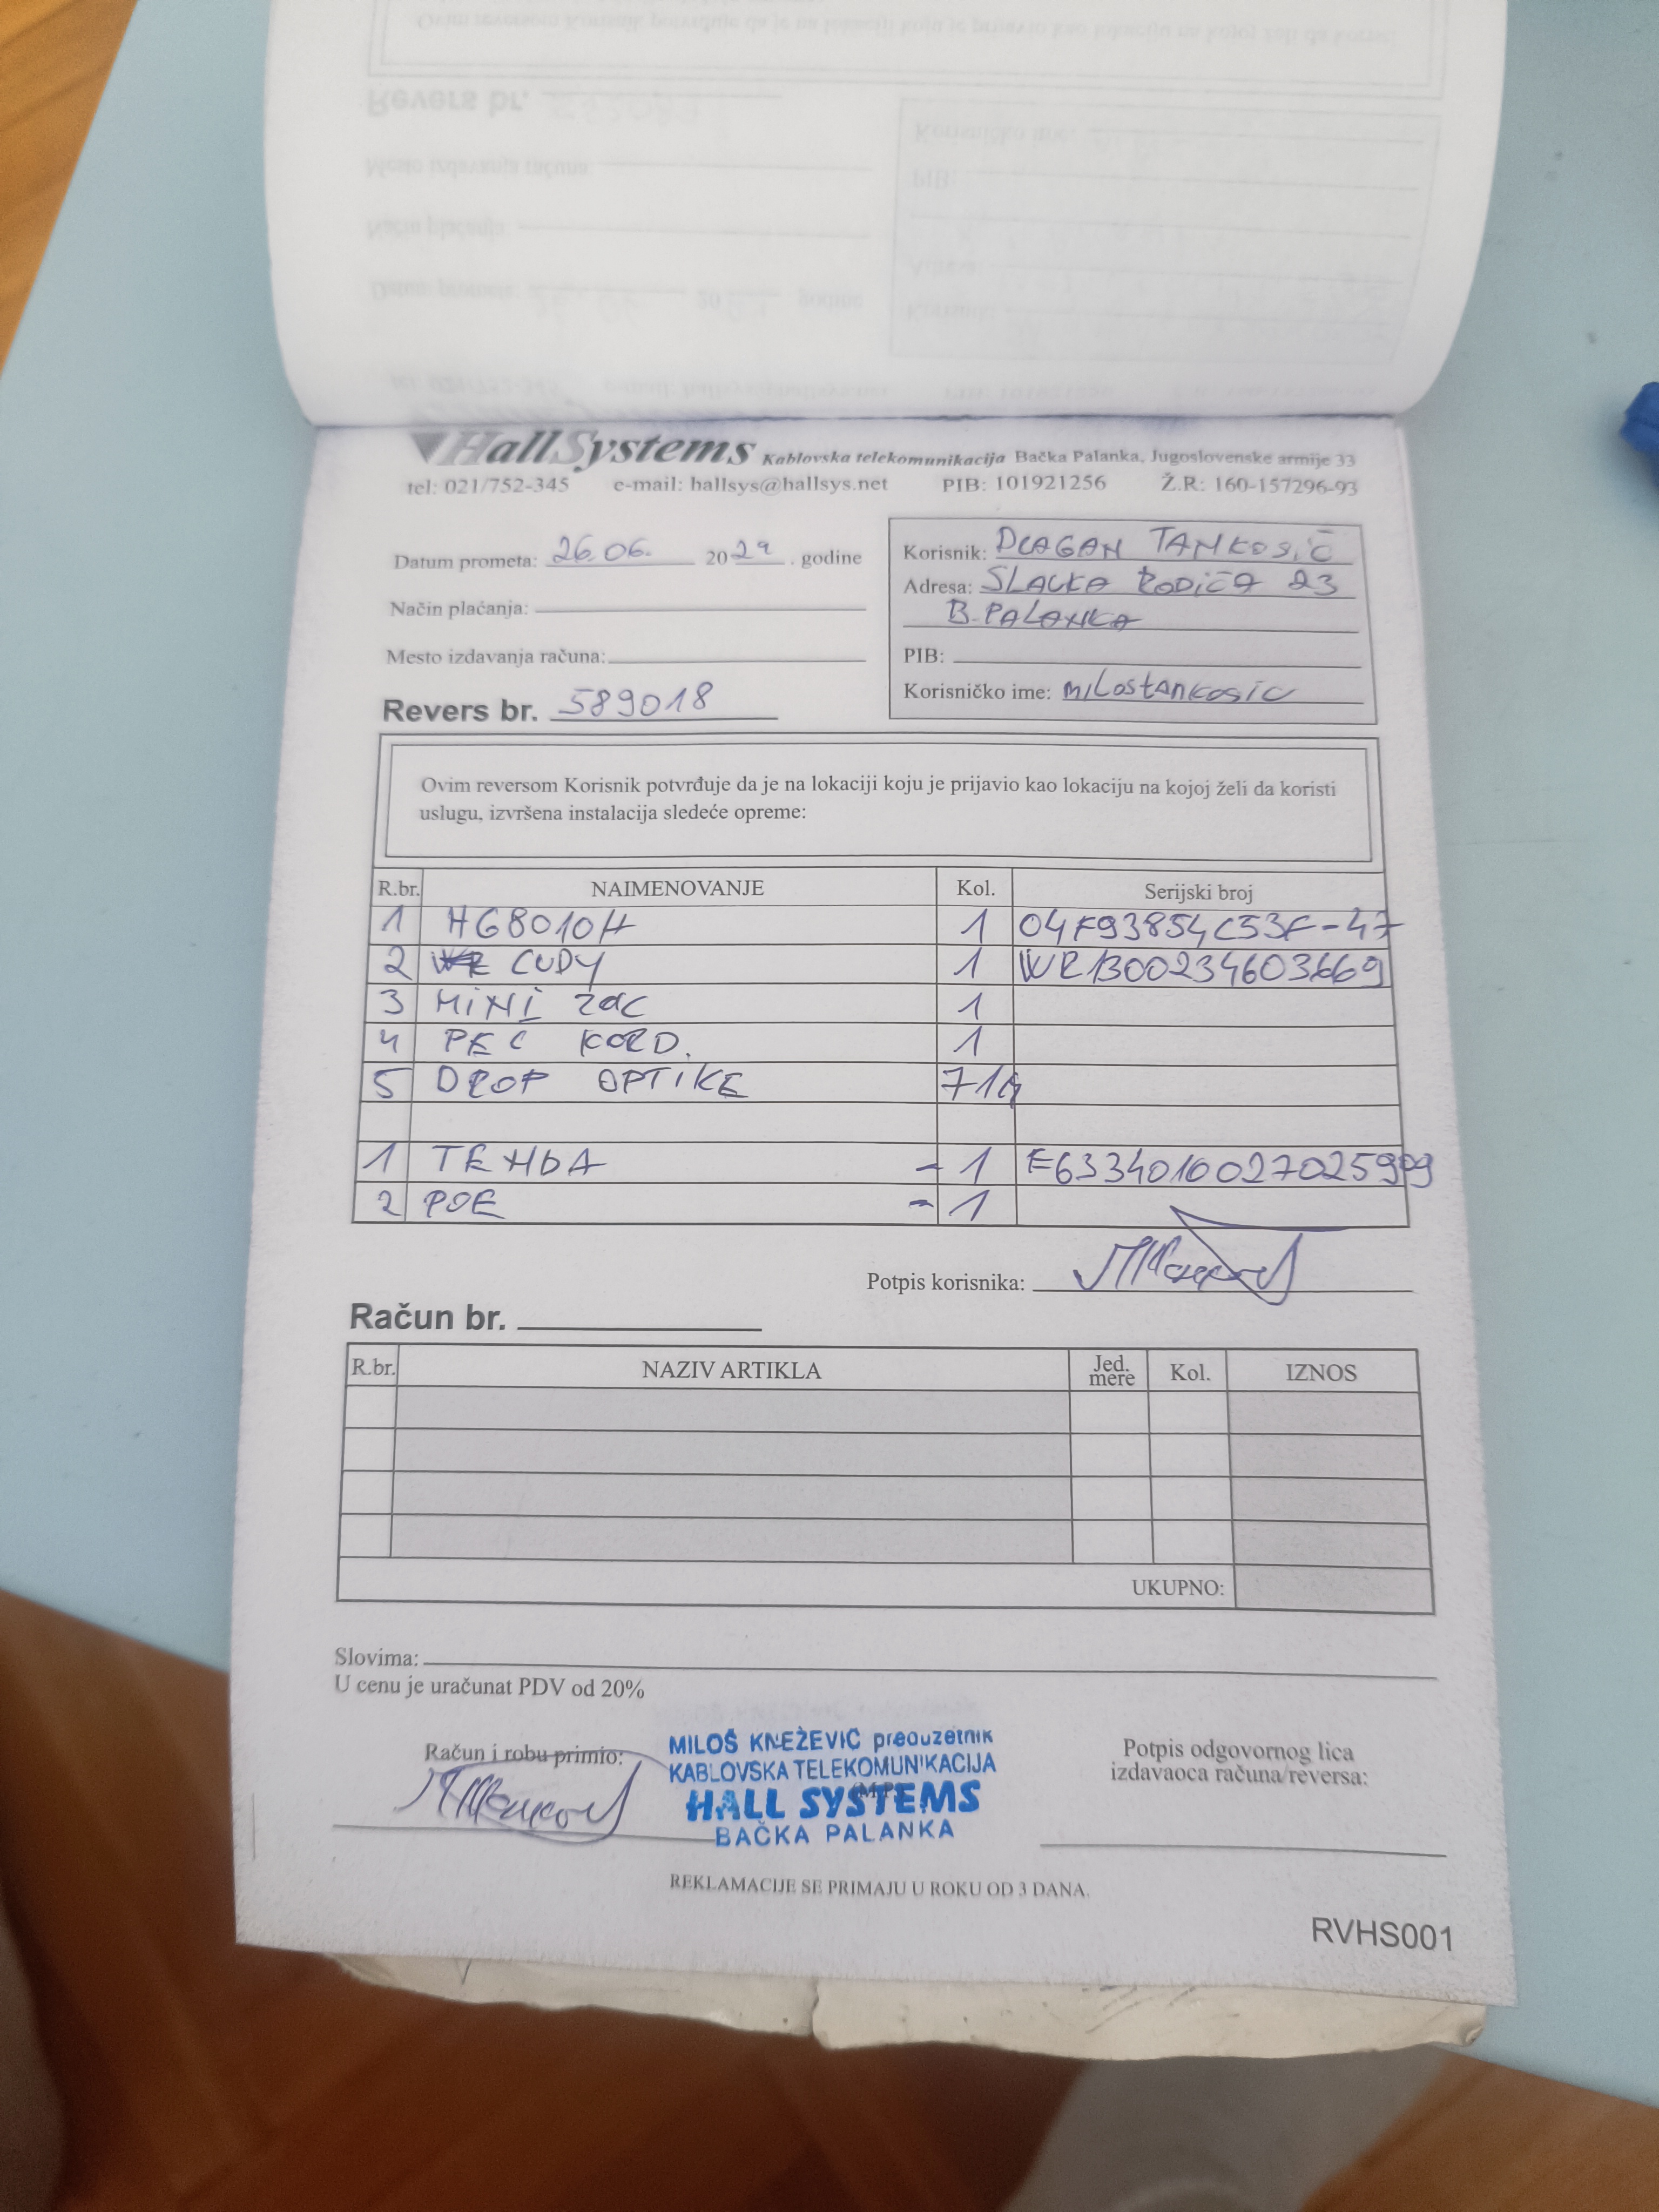 HallSystems Kablovska telekomunikacija Bačka Palanka, Jugoslovenske armije 33
tel: 021/752-345 e-mail: hallsys@hallsys.net PIB: 101921256 Ž.R: 160-157296-93
Datum prometa: 26.06. 2024. godine
Način plaćanja:
Mesto izdavanja računa:
Revers br. 589018
Korisnik: DRAGAN TANKOSIĆ
Adresa: SLAVKA RODIĆA 23
B. PALANKA
PIB:
Korisničko ime: milostankosic
Ovim reversom Korisnik potvrđuje da je na lokaciji koju je prijavio kao lokaciju na kojoj želi da koristi
uslugu, izvršena instalacija sledeće opreme:
R.br. NAIMENOVANJE Kol. Serijski broj
1 HG8010H 1 04F93854C53F-47
2 CUDY 1 WR1300234603669
3 MINI ZOK 1
4 PEČ KORD. 1
5 DROP OPTIKE 71m
1 TENDA - 1 E6334010027025999
2 POE - 1
Potpis korisnika:
Račun br.
R.br. NAZIV ARTIKLA Jed. mere Kol. IZNOS
UKUPNO:
Slovima:
U cenu je uračunat PDV od 20%
Račun i robu primio:
MILOŠ KNEŽEVIĆ preduzetnik
KABLOVSKA TELEKOMUNIKACIJA
HALL SYSTEMS
BAČKA PALANKA
(M.P.)
Potpis odgovornog lica
izdavaoca računa/reversa:
REKLAMACIJE SE PRIMAJU U ROKU OD 3 DANA.
RVHS001